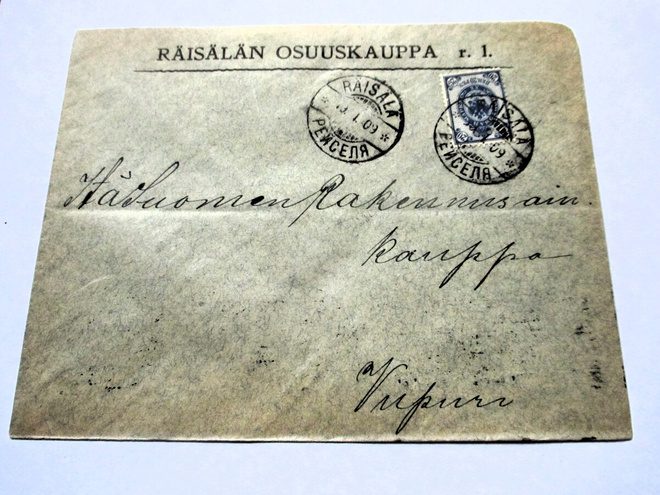 RÄISÄLÄN OSUUSKAUPPA r. l.
RÄISÄLÄ
1.09
РЕЙСЕЛЯ
RÄISÄLÄ
09
РЕЙСЕЛЯ
ItäSuomen Rakennusain.
kauppa
Viipuri